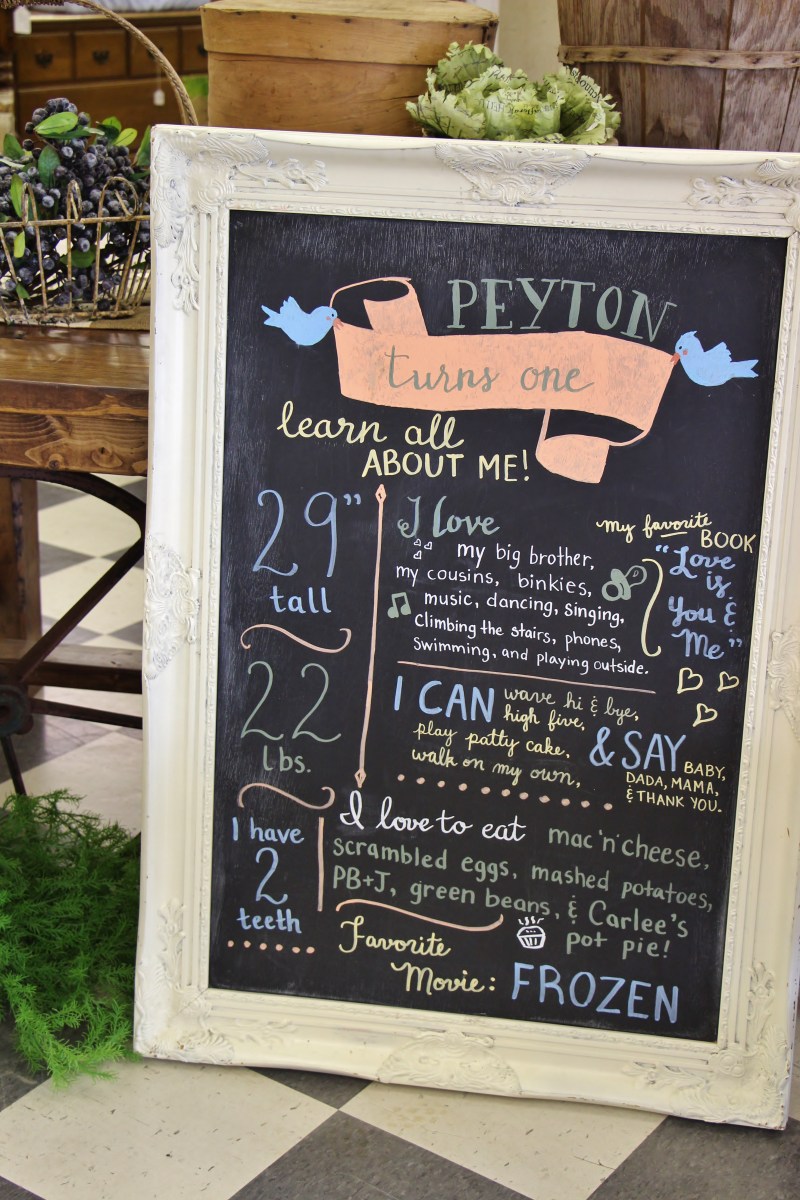 PEYTON
turns one
learn all
ABOUT ME!
29"
tall
22
lbs.
I have
2
teeth
I love
my big brother,
my cousins, binkies,
music, dancing, singing,
Climbing the stairs, phones,
Swimming, and playing outside.
my favorite
BOOK
"Love
is
You &
Me"
I CAN wave hi & bye,
high five,
play patty cake,
walk on my own,
& SAY BABY,
DADA, MAMA,
& THANK YOU.
I love to eat mac 'n' cheese,
scrambled eggs, mashed potatoes,
PB+J, green beans, & Carlee's
pot pie!
Favorite
Movie: FROZEN